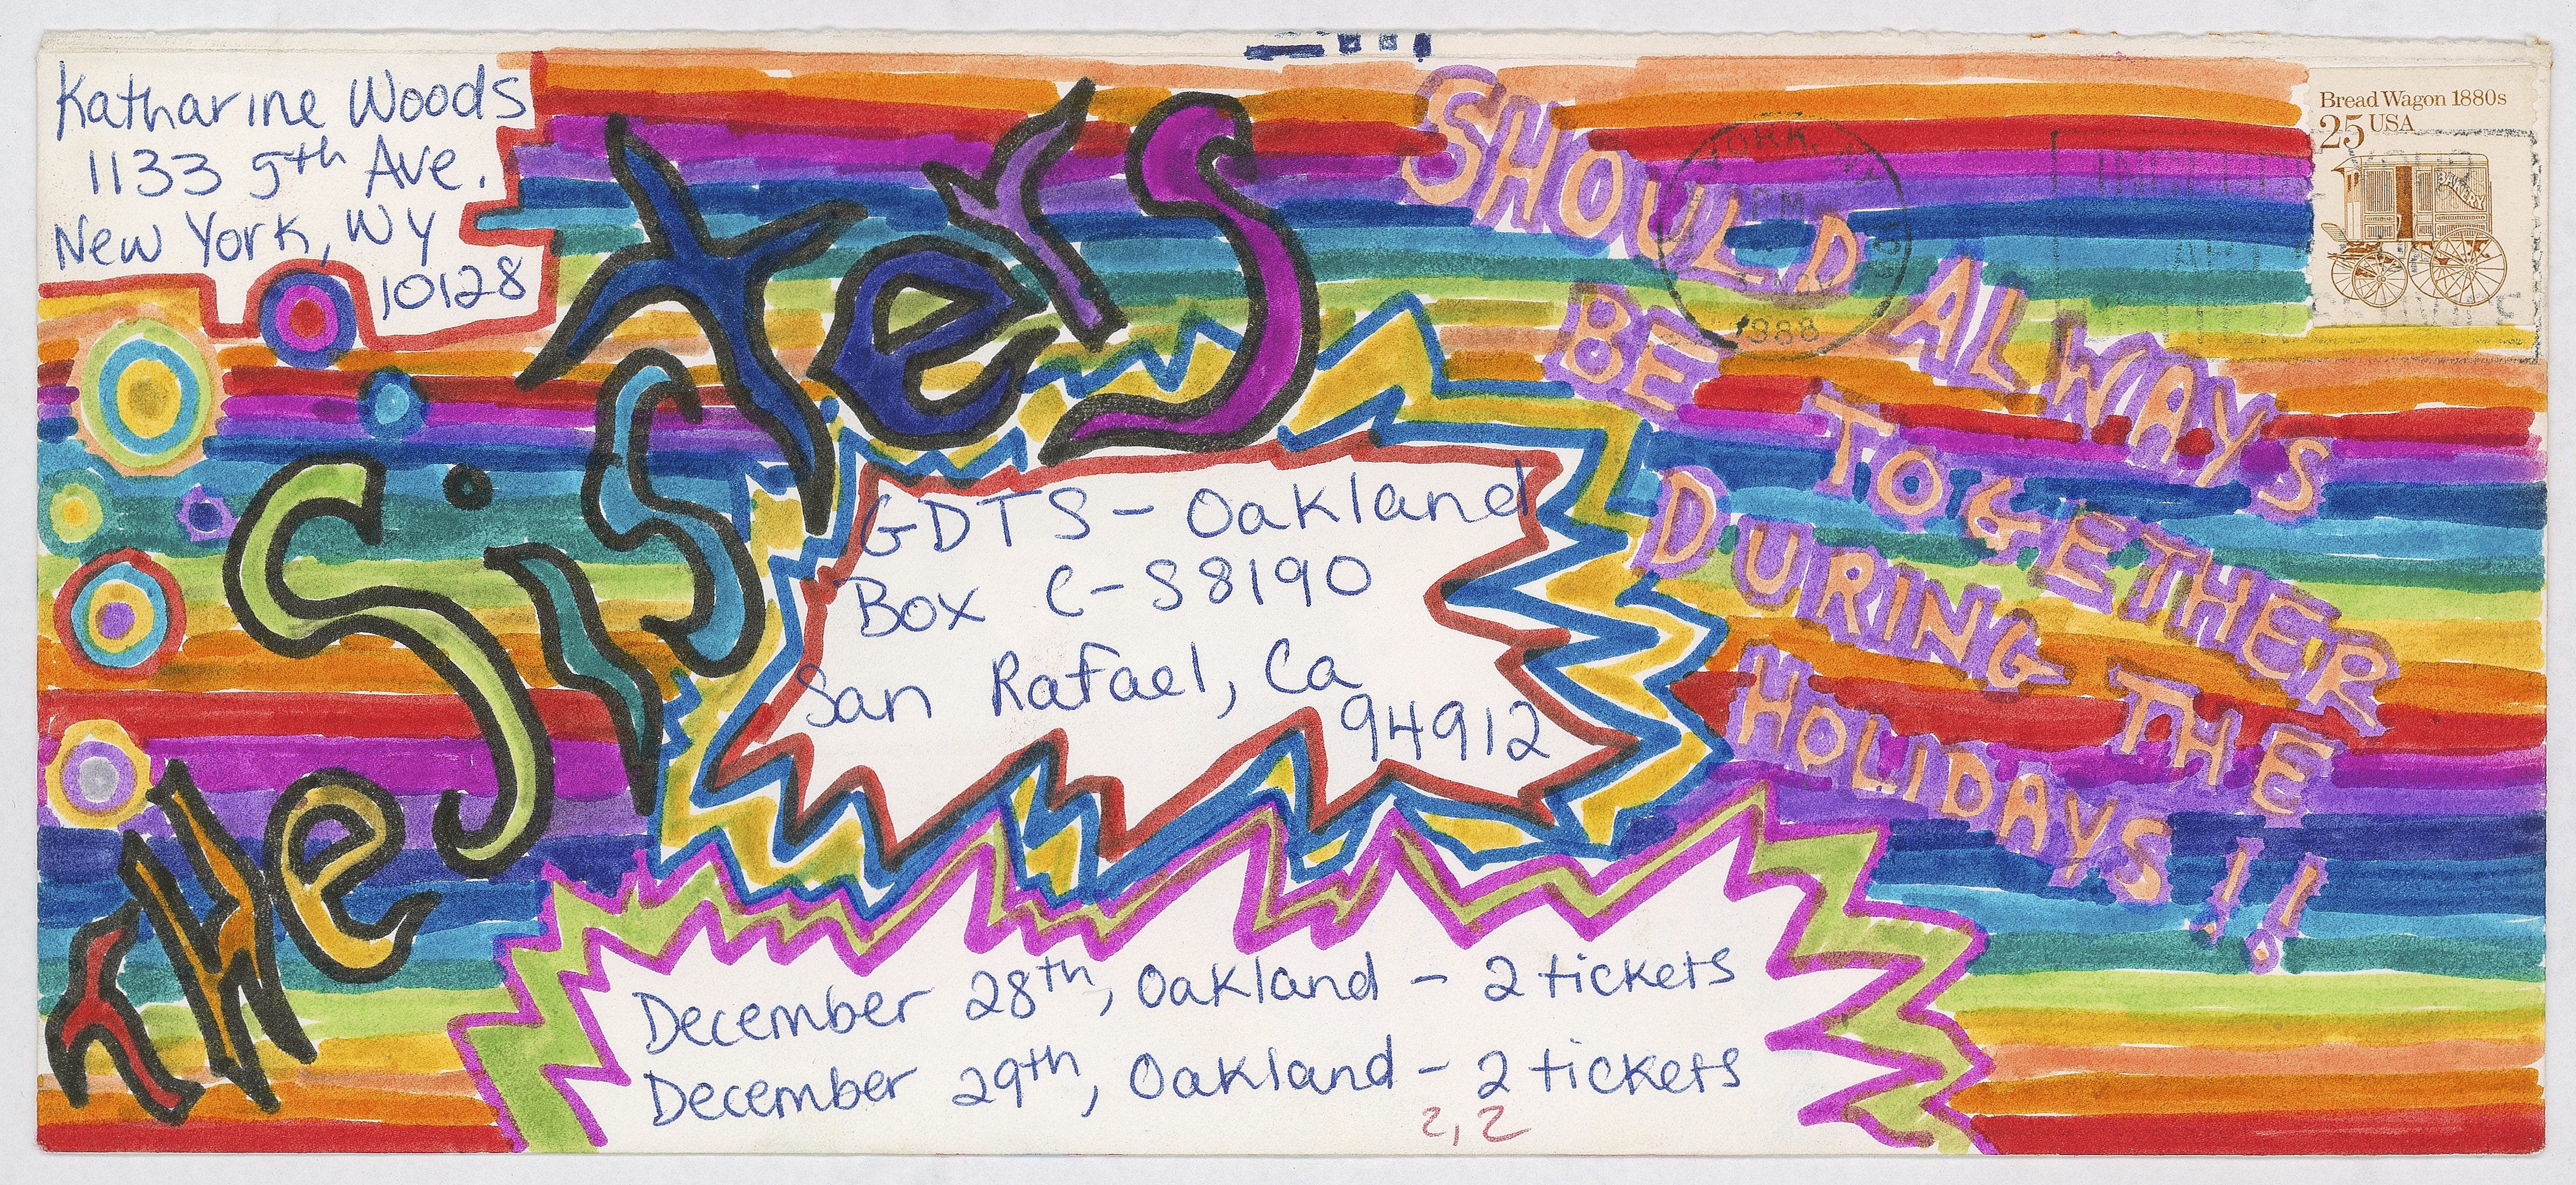 Katharine Woods
1133 5th Ave.
New York, NY
10128
Bread Wagon 1880s
25 USA
BAKERY
YORK, NY
PM
1988
THe SiSSTeRS
SHOULD ALWAYS
BE TOGETHER
DURING THE
HOLIDAYS!!
GDTS - Oakland
Box C-S8190
San Rafael, Ca
94912
December 28th, Oakland - 2 tickets
December 29th, Oakland - 2 tickets
2,2